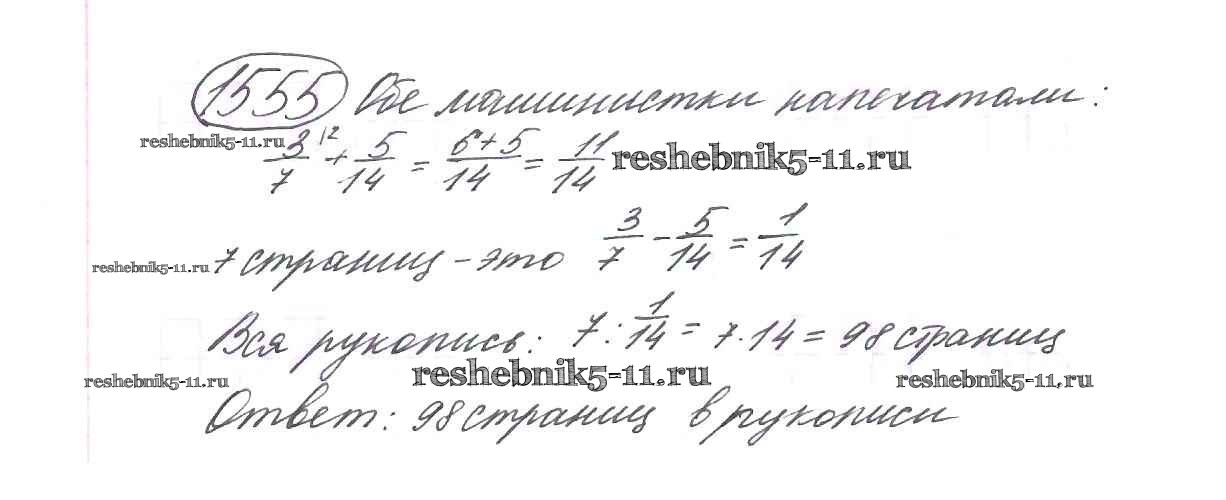 1555 Обе машинистки напечатали:
reshebnik5-11.ru
3/7 ^(2 + 5/14 = 6+5/14 = 11/14 reshebnik5-11.ru
reshebnik5-11.ru 7 страниц - это 3/7 - 5/14 = 1/14
Вся рукопись: 7 : 1/14 = 7 · 14 = 98 страниц
reshebnik5-11.ru reshebnik5-11.ru reshebnik5-11.ru
Ответ: 98 страниц в рукописи